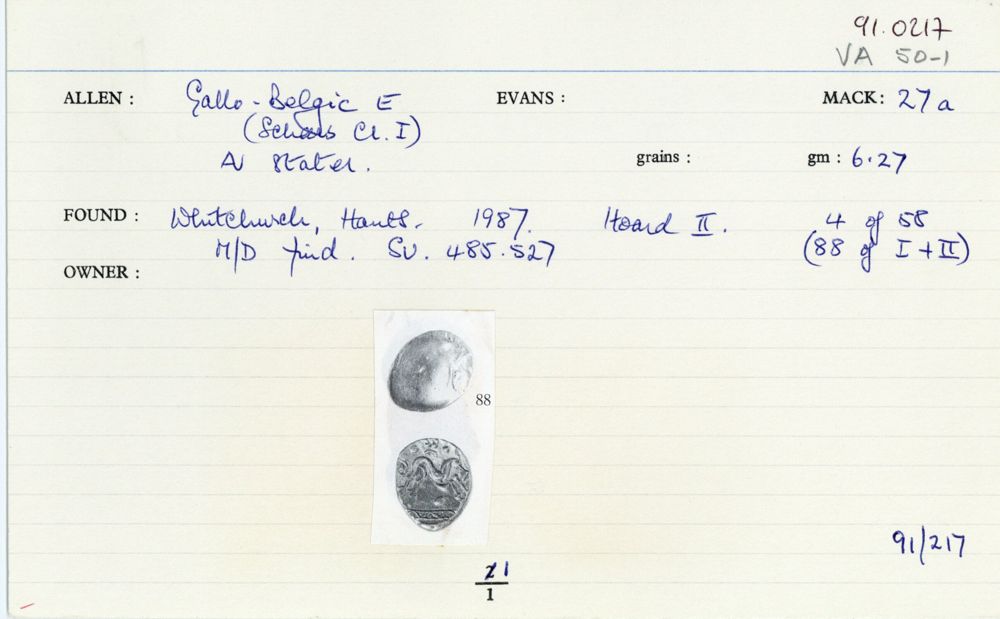 91.0217
VA 50-1
ALLEN : Gallo-Belgic E EVANS : MACK: 27a
(Scheers Cl. I)
AV Stater. grains : gm : 6.27
FOUND : Whitchurch, Hants. 1987. Hoard II. 4 of 58
M/D find. SU. 485.527 (88 of I + II)
OWNER :
88
91/217
1
1